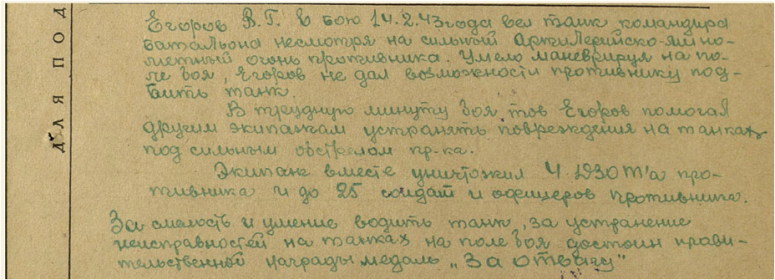 Егоров В.Г. в бою 14.2.43 года вел танк командира
батальона несмотря на сильный Артиллерийско-
метный огонь противника. Умело маневрируя на по-
ле боя, Егоров не дал возможности противнику под-
бить танк.
В трудную минуту боя тов Егоров помогал
другим экипажам устранять повреждения на танках
под сильным обстрелом пр-ка.
Экипаж вместе уничтожил про-
тивника и до 25 солдат и офицеров противника.
За смелость и умение водить танк, за устранение
неисправностей на танках на поле боя достоин прави-
тельственной награды медаль „За отвагу"
ДЛЯ ПОД